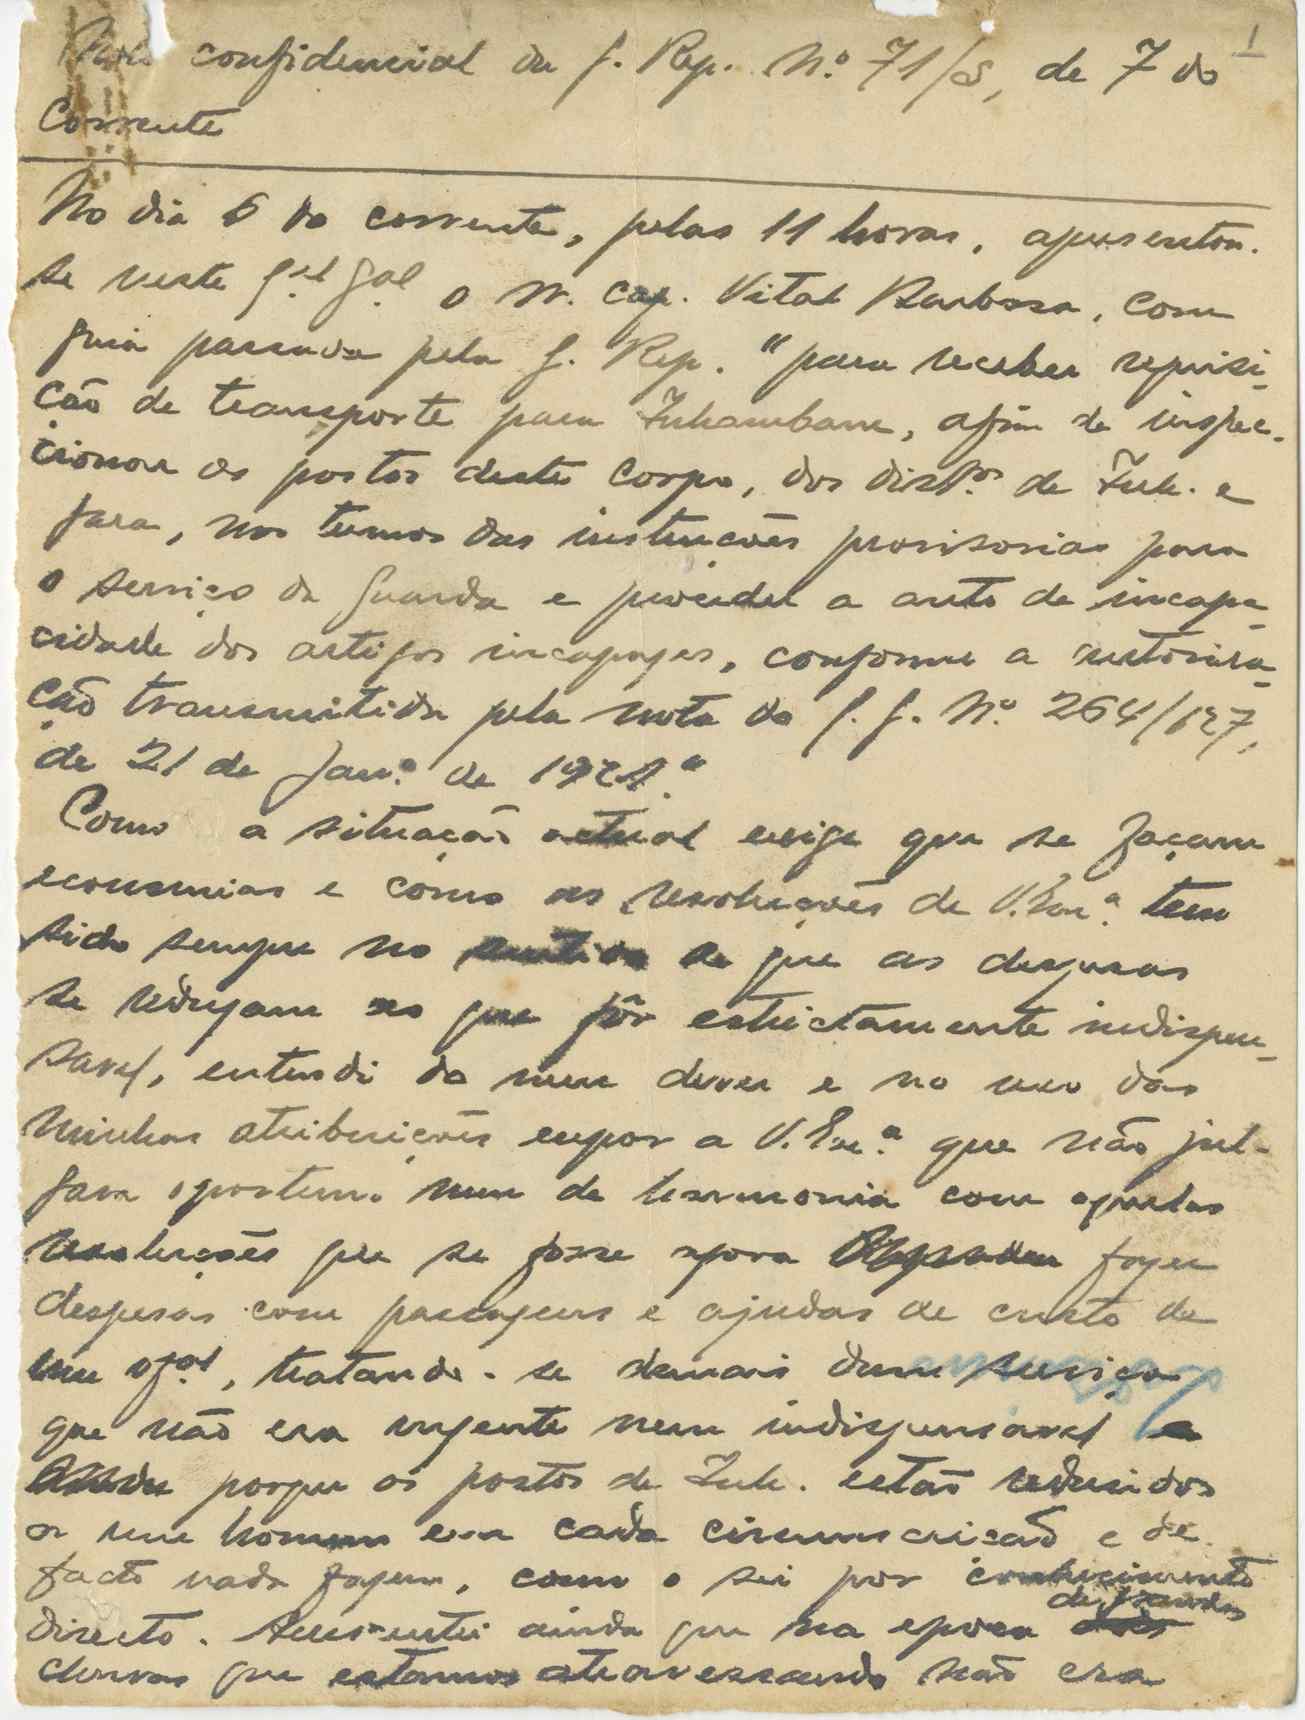 1
Nota confidencial da 1. Rep. N.º 71/S, de 7 do
Corrente
No dia 6 do corrente, pelas 11 horas, apresentou-
se neste Q.el G.al o Sr. cap. Vital Barbosa, com
guia passada pela 1. Rep. "para receber requisi-
ção de transporte para Inhambane, afim de inspec-
cionar os postos deste Corpo, dos distr.os de Inh. e
Gaza, nos termos das instruções provisorias para
o serviço da Guarda e proceder a auto de incapa-
cidade dos artigos incapazes, conforme a autorisa-
ção transmitida pela nota do Q. G. N.º 264/127,
de 21 de Jan.º de 1921."
Como a situação actual exige que se façam
economias e como as resoluções de V. Ex.ª tem
sido sempre no sentido de que as despesas
se reduzam ao que fôr estrictamente indispen-
savel, entendi do meu dever e no uso das
minhas atribuições expor a V. Ex.ª que não jul-
gava oportuno nem de harmonia com aquelas
resoluções que se fosse agora fazer
despesas com passagens e ajudas de custo de
um of.al, tratando-se demais dum serviço
que não era urgente nem indispensavel e
porque os postos de Inh. estão reduzidos
a um homem em cada circunscrição e de
facto nada fazem, como o sei por conhecimento
directo. Acrescentei ainda que na epoca de grandes
chuvas que estamos atravessando não era